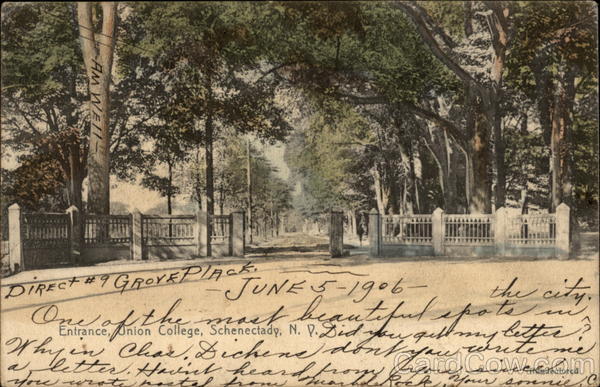 AM WELL -
DIRECT #9 GROVE PLACE.
- JUNE 5 - 1906 -
One of the most beautiful spots in the city.
Entrance, Union College, Schenectady, N. Y.
Did you get my letter?
Why in Chas. Dickens don't you write me
a letter. Havn't heard from
you wrote
CardCow.com